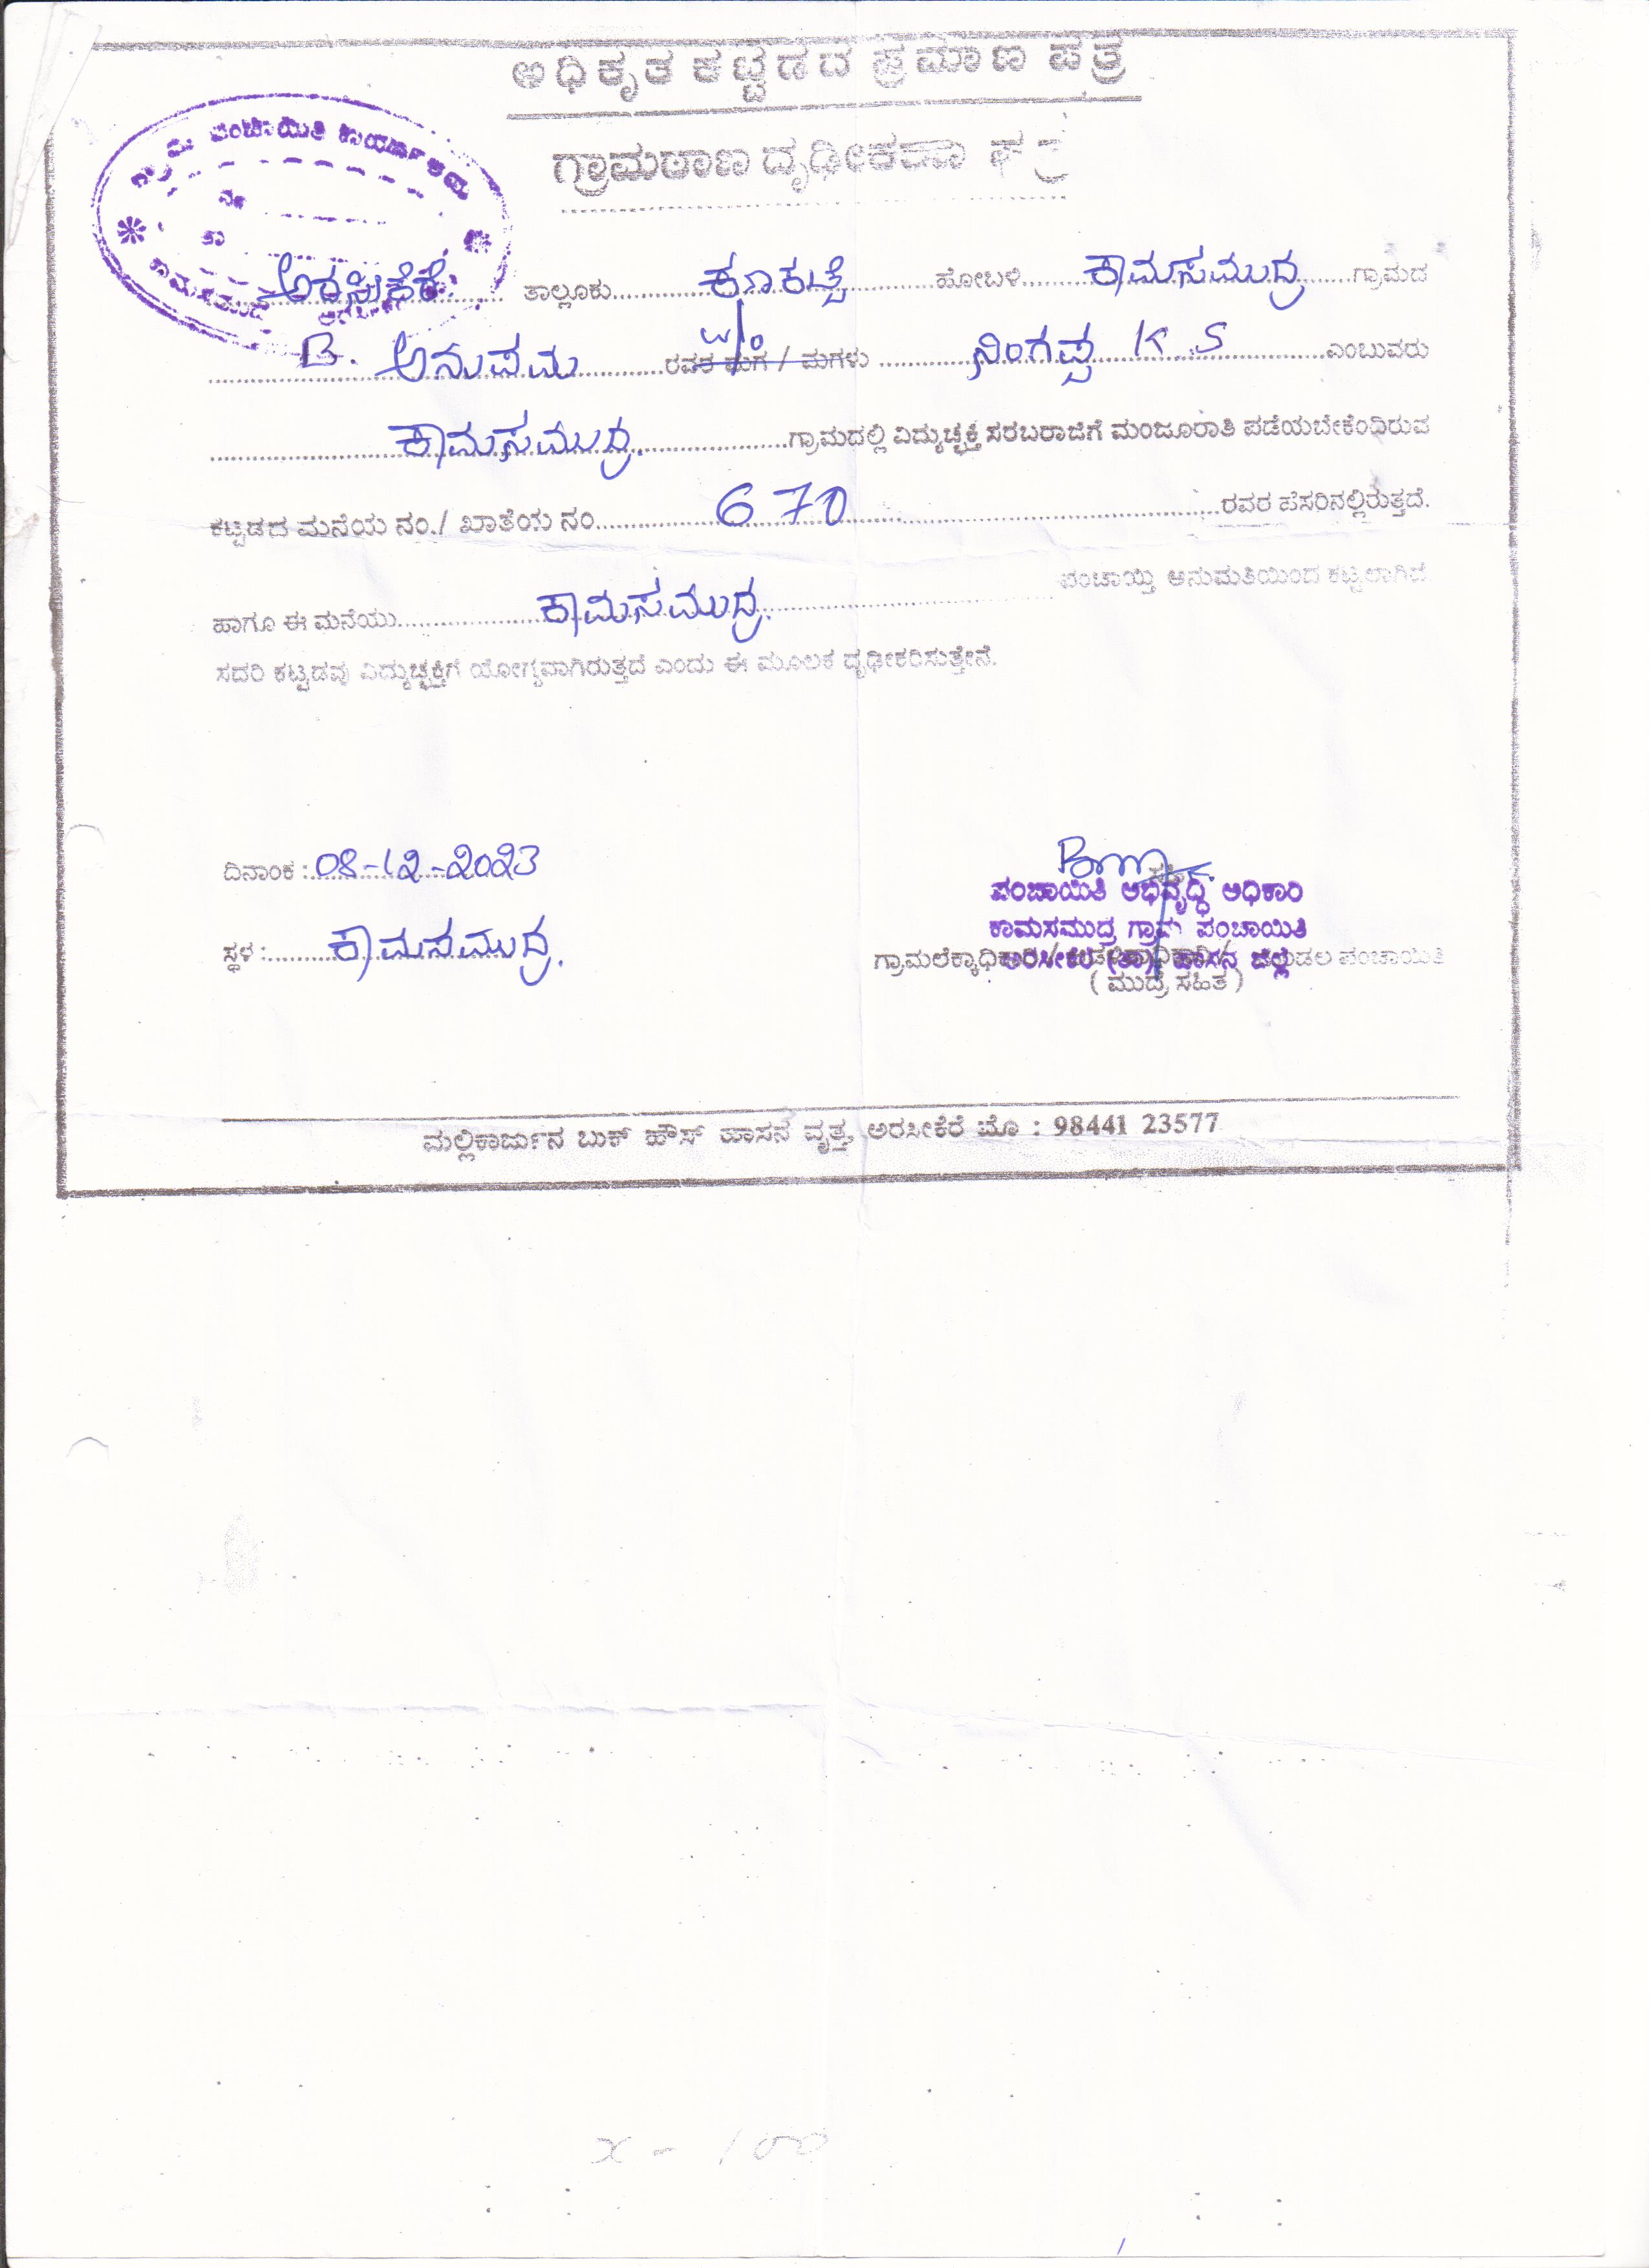 ಅಧಿಕೃತ ಕಟ್ಟಡದ ಪ್ರಮಾಣ ಪತ್ರ
ಗ್ರಾಮಠಾಣ ದೃಢೀಕರಣ ಪತ್ರ
ಗ್ರಾಮ ಪಂಚಾಯಿತಿ ಕಾರ್ಯಾಲಯ
ನಂ
ತಾ
ಕಾಮಸಮುದ್ರ
ಅರಸೀಕೆರೆ ತಾಲ್ಲೂಕು ಕಣಕಟ್ಟೆ ಹೋಬಳಿ ಕಾಮಸಮುದ್ರ ಗ್ರಾಮದ
w/o
B. ಅನುಪಮ ರವರ ಮಗ / ಮಗಳು ನಿಂಗಪ್ಪ K.S ಎಂಬುವರು
ಕಾಮಸಮುದ್ರ. ಗ್ರಾಮದಲ್ಲಿ ವಿದ್ಯುಚ್ಛಕ್ತಿ ಸರಬರಾಜಿಗೆ ಮಂಜೂರಾತಿ ಪಡೆಯಬೇಕೆಂದಿರುವ
ಕಟ್ಟಡದ ಮನೆಯ ನಂ./ ಖಾತೆಯ ನಂ. 670 ರವರ ಹೆಸರಿನಲ್ಲಿರುತ್ತದೆ.
ಹಾಗೂ ಈ ಮನೆಯು ಕಾಮಸಮುದ್ರ. ಪಂಚಾಯ್ತಿ ಅನುಮತಿಯಿಂದ ಕಟ್ಟಲಾಗಿದೆ
ಸದರಿ ಕಟ್ಟಡವು ವಿದ್ಯುಚ್ಛಕ್ತಿಗೆ ಯೋಗ್ಯವಾಗಿರುತ್ತದೆ ಎಂದು ಈ ಮೂಲಕ ದೃಢೀಕರಿಸುತ್ತೇನೆ.
ದಿನಾಂಕ : 08-12-2023
ಪಂಚಾಯಿತಿ ಅಭಿವೃದ್ಧಿ ಅಧಿಕಾರಿ
ಕಾಮಸಮುದ್ರ ಗ್ರಾಮ ಪಂಚಾಯಿತಿ
ಅರಸೀಕೆರೆ (ತಾ) ಹಾಸನ ಜಿಲ್ಲೆ
ಸ್ಥಳ : ಕಾಮಸಮುದ್ರ.
ಗ್ರಾಮಲೆಕ್ಕಾಧಿಕಾರಿ / ಪಂಚಾಯಿತಿ
( ಮುದ್ರೆ ಸಹಿತ )
ಮಲ್ಲಿಕಾರ್ಜುನ ಬುಕ್ ಹೌಸ್ ಹಾಸನ ವೃತ್ತ, ಅರಸೀಕೆರೆ ಮೊ : 98441 23577
x - 100